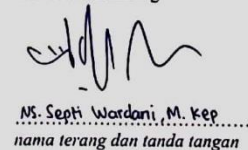 Ns. Septi Wardani, M. Kep
nama terang dan tanda tangan